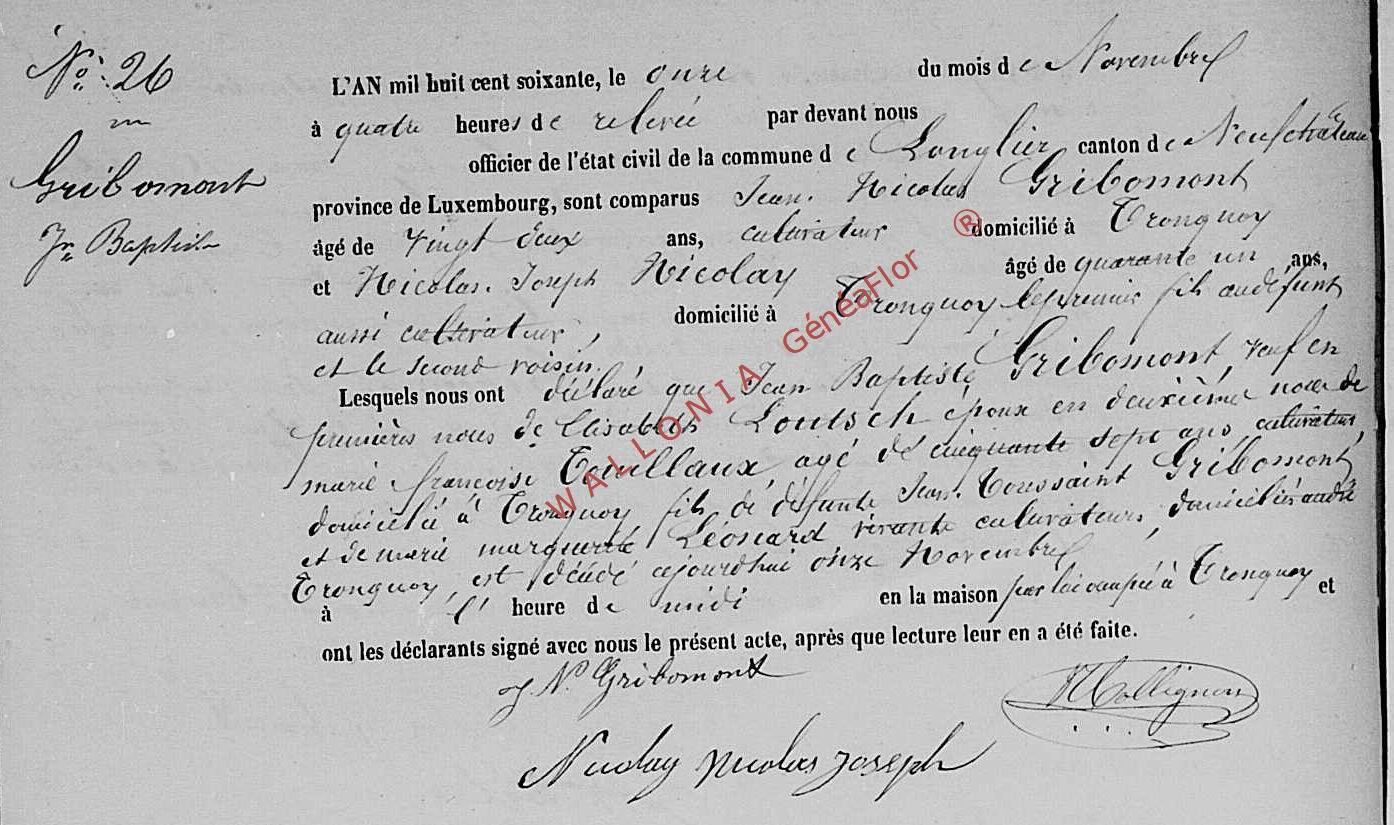 No. 26
Gribomont
Jn Baptiste
L'AN mil huit cent soixante, le onze du mois de Novembre
à quatre heures de relevée par devant nous
officier de l'état civil de la commune de Longlier canton de Neufchâteau
province de Luxembourg, sont comparus Jean. Nicolas Gribomont
âgé de vingt deux ans, cultivateur domicilié à Tronquoy
et Nicolas. Joseph Nicolay âgé de quarante un ans,
aussi cultivateur, domicilié à Tronquoy le premier fils au défunt
et le second voisin.
Lesquels nous ont déclaré que Jean Baptiste Gribomont, veuf en
premières noces de Elisabeth Loutsch époux en deuxième noces de
marie françoise Touillaux, agé de cinquante sept ans, cultivateur,
domicilié à Tronquoy fils de défunts Jean. Toussaint Gribomont
et de marie marguerite Léonard vivante cultivateurs, domiciliés audit
Tronquoy, est décédé ajourdhui onze Novembre
à l' heure de midi en la maison par lui occupée à Tronquoy et
ont les déclarants signé avec nous le présent acte, après que lecture leur en a été faite.
J N. Gribomont
Collignon
Nicolay Nicolas Joseph
WALLONIA GénéaFlor ®